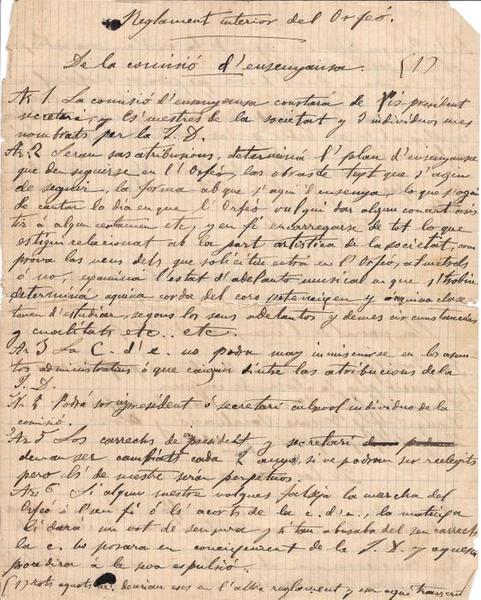 Reglament interior del Orfeó.
De la comissió d'ensenyansa. (1)
Ar 1. La comisió d'ensenyansa constará de president
secretari, y els mestres de la societat y 3 individuos mes
nombrats per la J. D.
Ar. 2 Seran sas atribusions, determiná l'plan d'ensenyansa
que deu seguirse en l'Orfeó, las obras de text que s'agin
de seguir, la forma ab que s'agi l'ensenya, lo que s'agi
de cantar lo dia en que l'Orfeó vulgui dar algun concert asis
tir á algun certamen etc, y en fi encarregarse de tot lo que
estigui relacionat ab la part artística de la societat, com
prova las veus dels que solicitin entrá en l'Orfeó, admetrels
ó no, examiná l'estat d'adelanto musical en que s'trobin
determiná aquina corda del coro perteneixen y aquina clase
tenen d'estudiar, segons los seus adelantos y demes circumstancias
y cualitats etc.. etc.
Ar 3 La C. d'e. no podrá may inmiscuirse en los asun
tos administratius ó que caiguin dintre las atribucions de la
J. D.
Ar. 4. Podrá ser president ó secretari cualsevol individuo de la
comisió.
Ar 5 Los carrechs de president y secretari
deuran ser cambiats cada 2 anys, si be podran ser reelegits
pero els de mestre serán perpetuos.
Ar. 6 Si algun mestre volgues falsejá la marcha del
Orfeó ó l'seu fi ó els acorts de la c. d'e., la mateixa
li dará un vot de sensura y si tan abusaba del seu carrech
la c. ho posará en coneixement de la J. D. y aquesta
procedirá a la seva espulsió.
(1) tots aquets deurian esser en l'altre reglament y ser aquí transcrit